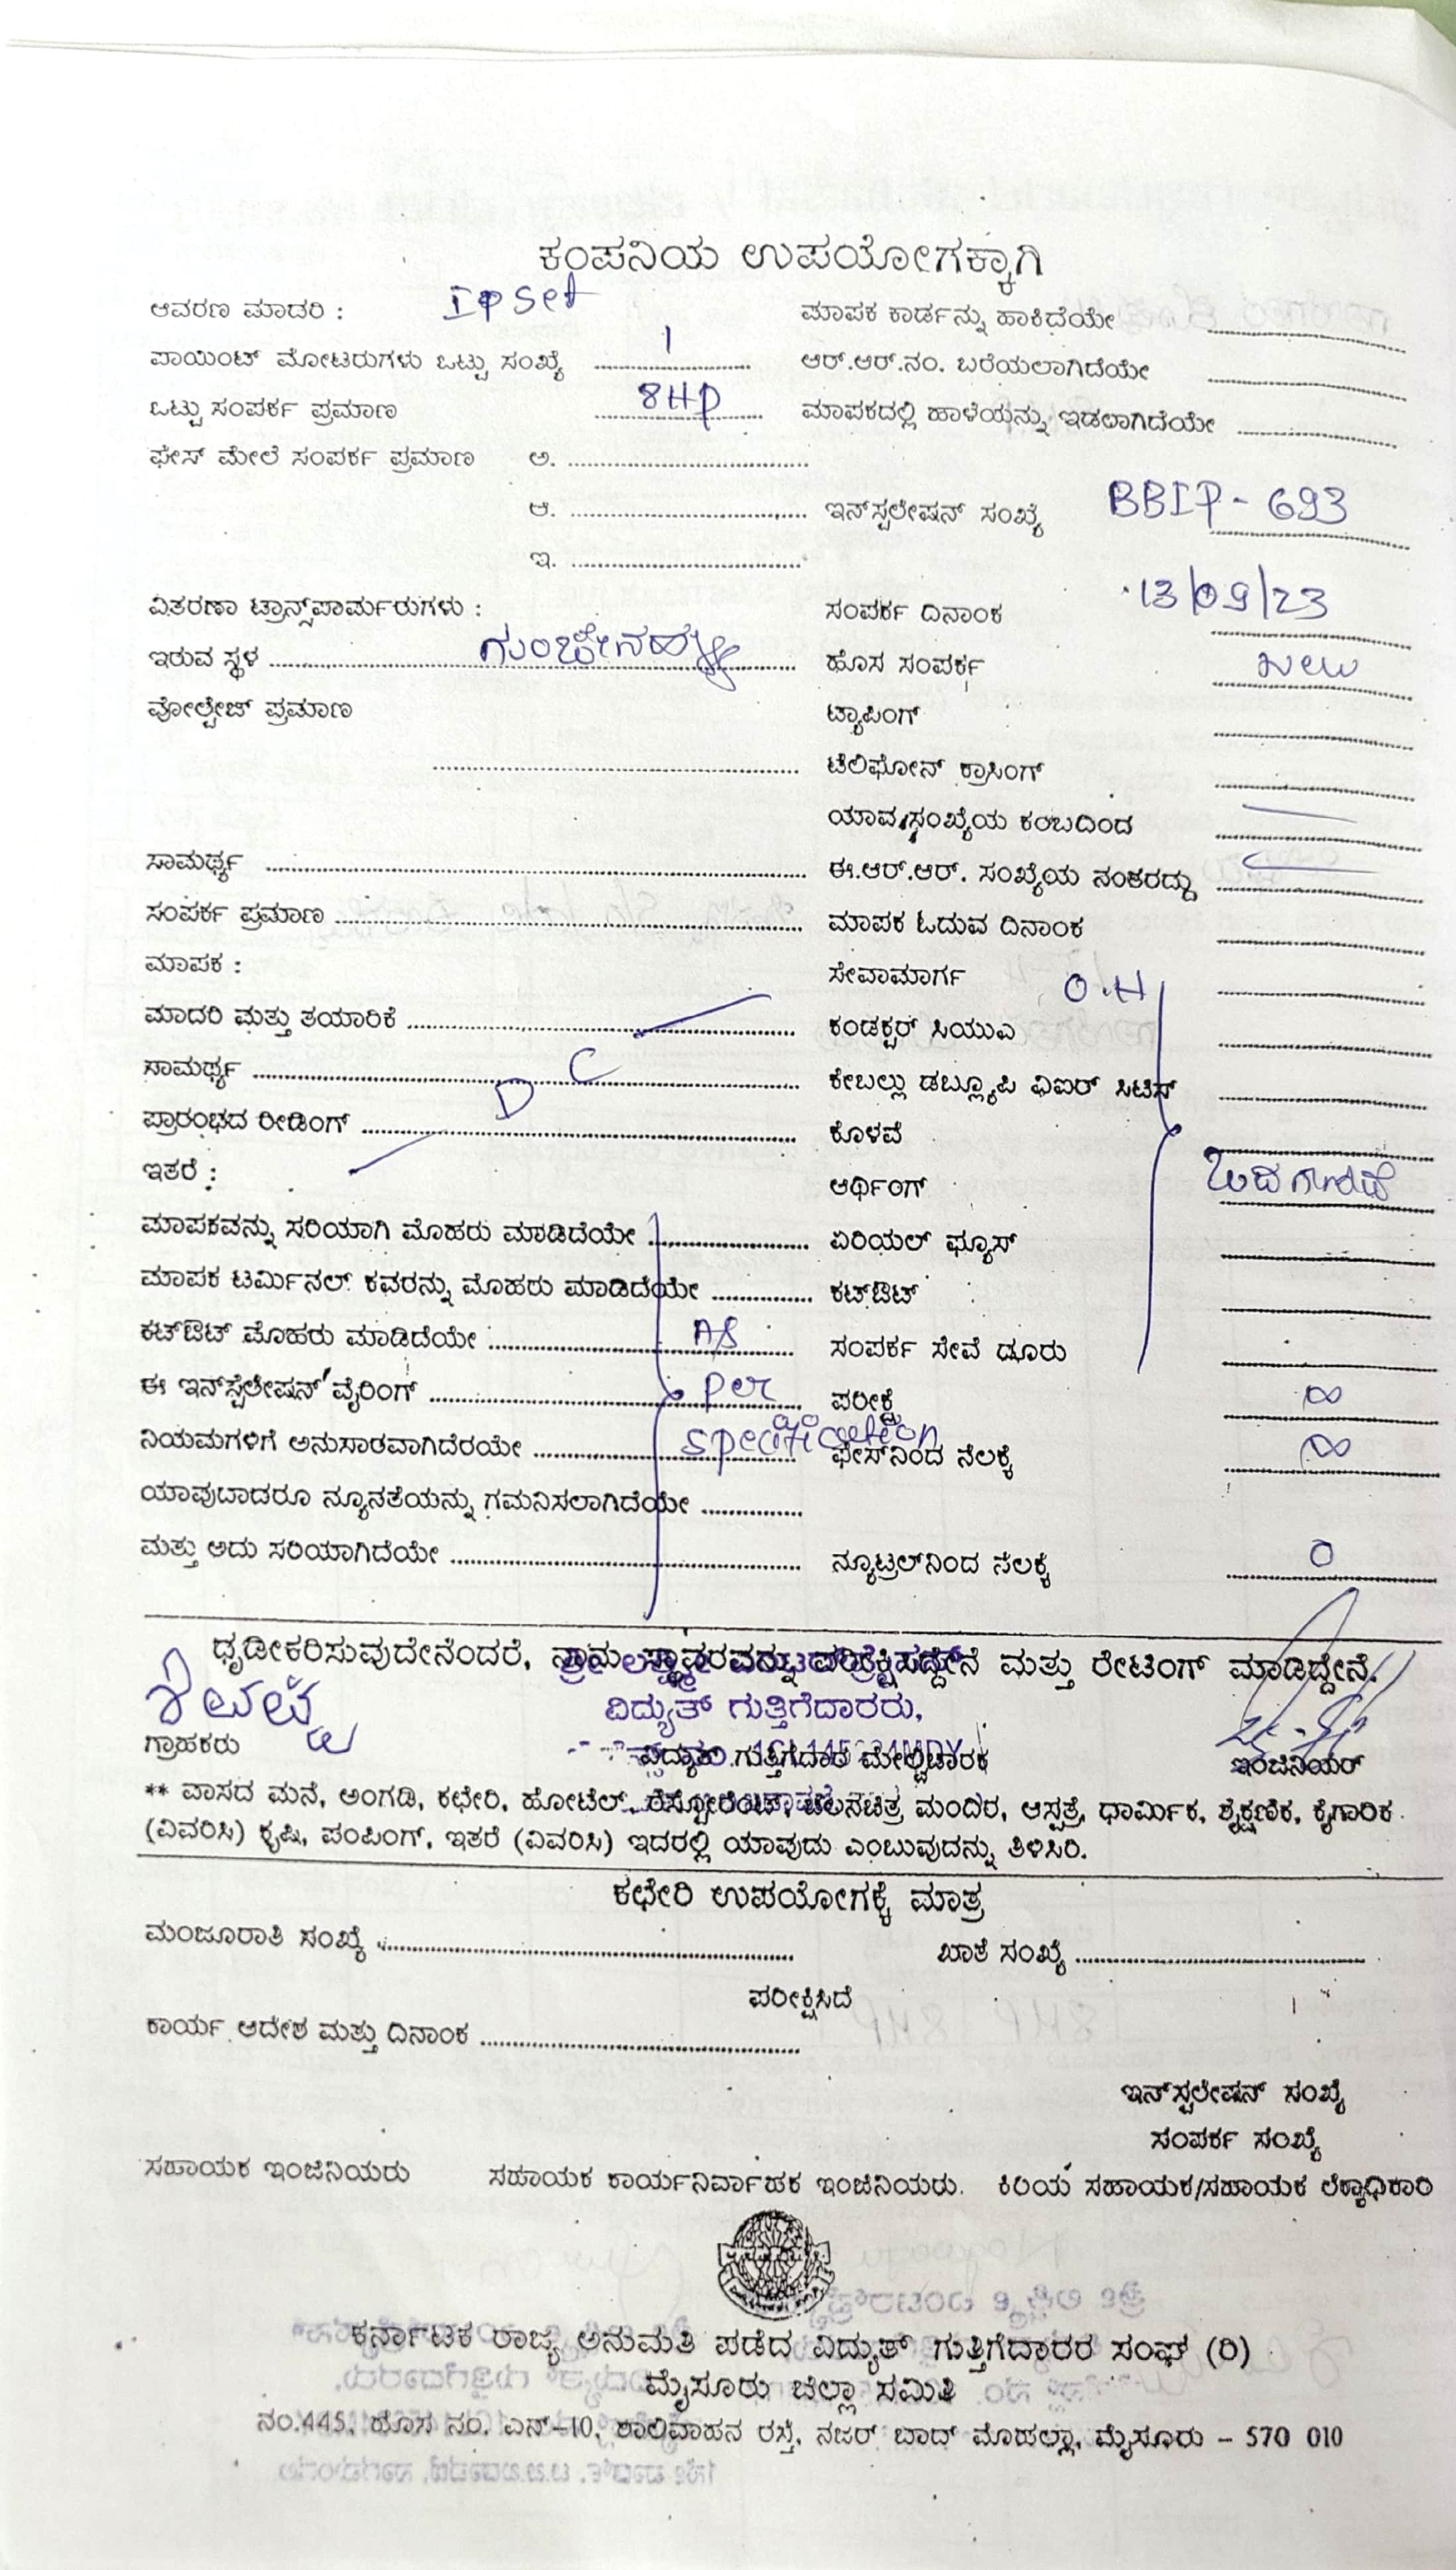 ಕಂಪನಿಯ ಉಪಯೋಗಕ್ಕಾಗಿ
ಆವರಣ ಮಾದರಿ : IP Set ಮಾಪಕ ಕಾರ್ಡನ್ನು ಹಾಕಿದೆಯೇ
ಪಾಯಿಂಟ್ ಮೋಟರುಗಳು ಒಟ್ಟು ಸಂಖ್ಯೆ 1 ಆರ್.ಆರ್.ನಂ. ಬರೆಯಲಾಗಿದೆಯೇ
ಒಟ್ಟು ಸಂಪರ್ಕ ಪ್ರಮಾಣ 8HP ಮಾಪಕದಲ್ಲಿ ಹಾಳೆಯನ್ನು ಇಡಲಾಗಿದೆಯೇ
ಫೇಸ್ ಮೇಲೆ ಸಂಪರ್ಕ ಪ್ರಮಾಣ ಅ.
ಆ. ಇನ್‌ಸ್ಟಲೇಷನ್ ಸಂಖ್ಯೆ BBIP - 693
ಇ.
ವಿತರಣಾ ಟ್ರಾನ್ಸ್‌ಪಾರ್ಮರುಗಳು : ಸಂಪರ್ಕ ದಿನಾಂಕ 13/09/23
ಇರುವ ಸ್ಥಳ ಹೊಸ ಸಂಪರ್ಕ New
ವೋಲ್ಟೇಜ್ ಪ್ರಮಾಣ ಟ್ಯಾಪಿಂಗ್
ಟೆಲಿಫೋನ್ ಕ್ರಾಸಿಂಗ್
ಯಾವ ಸಂಖ್ಯೆಯ ಕಂಬದಿಂದ
ಸಾಮರ್ಥ್ಯ ಈ.ಆರ್.ಆರ್. ಸಂಖ್ಯೆಯ ನಂತರದ್ದು
ಸಂಪರ್ಕ ಪ್ರಮಾಣ ಮಾಪಕ ಓದುವ ದಿನಾಂಕ
ಮಾಪಕ : ಸೇವಾಮಾರ್ಗ O.H
ಮಾದರಿ ಮತ್ತು ತಯಾರಿಕೆ ಕಂಡಕ್ಟರ್ ಸಿಯುಎ
ಸಾಮರ್ಥ್ಯ D C ಕೇಬಲ್ಲು ಡಬ್ಲ್ಯೂಪಿ ಫಿಐರ್ ಸಿಟಿಸ್
ಪ್ರಾರಂಭದ ರೀಡಿಂಗ್ ಕೊಳವೆ
ಇತರೆ : ಆರ್ಥಿಂಗ್ ಒದಗಿಸಿದೆ
ಮಾಪಕವನ್ನು ಸರಿಯಾಗಿ ಮೊಹರು ಮಾಡಿದೆಯೇ ಏರಿಯಲ್ ಫ್ಯೂಸ್
ಮಾಪಕ ಟರ್ಮಿನಲ್ ಕವರನ್ನು ಮೊಹರು ಮಾಡಿದೆಯೇ ಕಟ್‌ಔಟ್
ಕಟ್‌ಔಟ್ ಮೊಹರು ಮಾಡಿದೆಯೇ As ಸಂಪರ್ಕ ಸೇವೆ ದೂರು
ಈ ಇನ್‌ಸ್ಟೆಲೇಷನ್ ವೈರಿಂಗ್ per ಪರೀಕ್ಷೆ ∞
ನಿಯಮಗಳಿಗೆ ಅನುಸಾರವಾಗಿದೆರಯೇ specification ಫೇಸ್‌ನಿಂದ ನೆಲಕ್ಕೆ ∞
ಯಾವುದಾದರೂ ನ್ಯೂನತೆಯನ್ನು ಗಮನಿಸಲಾಗಿದೆಯೇ
ಮತ್ತು ಅದು ಸರಿಯಾಗಿದೆಯೇ ನ್ಯೂಟ್ರಲ್‌ನಿಂದ ನೆಲಕ್ಕೆ 0
ಧೃಡೀಕರಿಸುವುದೇನೆಂದರೆ, ನಾನು ಸ್ಥಾವರವನ್ನು ಪರೀಕ್ಷಿಸಿದ್ದೇನೆ ಮತ್ತು ರೇಟಿಂಗ್ ಮಾಡಿದ್ದೇನೆ.
ವಿದ್ಯುತ್ ಗುತ್ತಿಗೆದಾರರು,
ಗ್ರಾಹಕರು ವಿದ್ಯುತ್ ಗುತ್ತಿಗೆದಾರ ಮೇಲ್ವಿಚಾರಕ ಇಂಜಿನಿಯರ್
** ವಾಸದ ಮನೆ, ಅಂಗಡಿ, ಕಛೇರಿ, ಹೋಟೆಲ್, ರೆಸ್ಟೋರೆಂಟ್, ಚಲನಚಿತ್ರ ಮಂದಿರ, ಆಸ್ಪತ್ರೆ, ಧಾರ್ಮಿಕ, ಶೈಕ್ಷಣಿಕ, ಕೈಗಾರಿಕ
(ವಿವರಿಸಿ) ಕೃಷಿ, ಪಂಪಿಂಗ್, ಇತರೆ (ವಿವರಿಸಿ) ಇದರಲ್ಲಿ ಯಾವುದು ಎಂಬುವುದನ್ನು ತಿಳಿಸಿರಿ.
ಕಛೇರಿ ಉಪಯೋಗಕ್ಕೆ ಮಾತ್ರ
ಮಂಜೂರಾತಿ ಸಂಖ್ಯೆ ಖಾತೆ ಸಂಖ್ಯೆ
ಪರೀಕ್ಷಿಸಿದೆ
ಕಾರ್ಯ ಆದೇಶ ಮತ್ತು ದಿನಾಂಕ
ಇನ್‌ಸ್ಟಲೇಷನ್ ಸಂಖ್ಯೆ
ಸಂಪರ್ಕ ಸಂಖ್ಯೆ
ಸಹಾಯಕ ಇಂಜಿನಿಯರು ಸಹಾಯಕ ಕಾರ್ಯನಿರ್ವಾಹಕ ಇಂಜಿನಿಯರು. ಕಿರಿಯ ಸಹಾಯಕ/ಸಹಾಯಕ ಲೆಕ್ಕಾಧಿಕಾರಿ
ಕರ್ನಾಟಕ ರಾಜ್ಯ ಅನುಮತಿ ಪಡೆದ ವಿದ್ಯುತ್ ಗುತ್ತಿಗೆದಾರರ ಸಂಘ (ರಿ)
ಮೈಸೂರು ಜಿಲ್ಲಾ ಸಮಿತಿ
ನಂ.445, ಹೊಸ ನಂ. ಎನ್-10, ಶಾಲಿವಾಹನ ರಸ್ತೆ, ನಜರ್ ಬಾದ್ ಮೊಹಲ್ಲಾ, ಮೈಸೂರು - 570 010